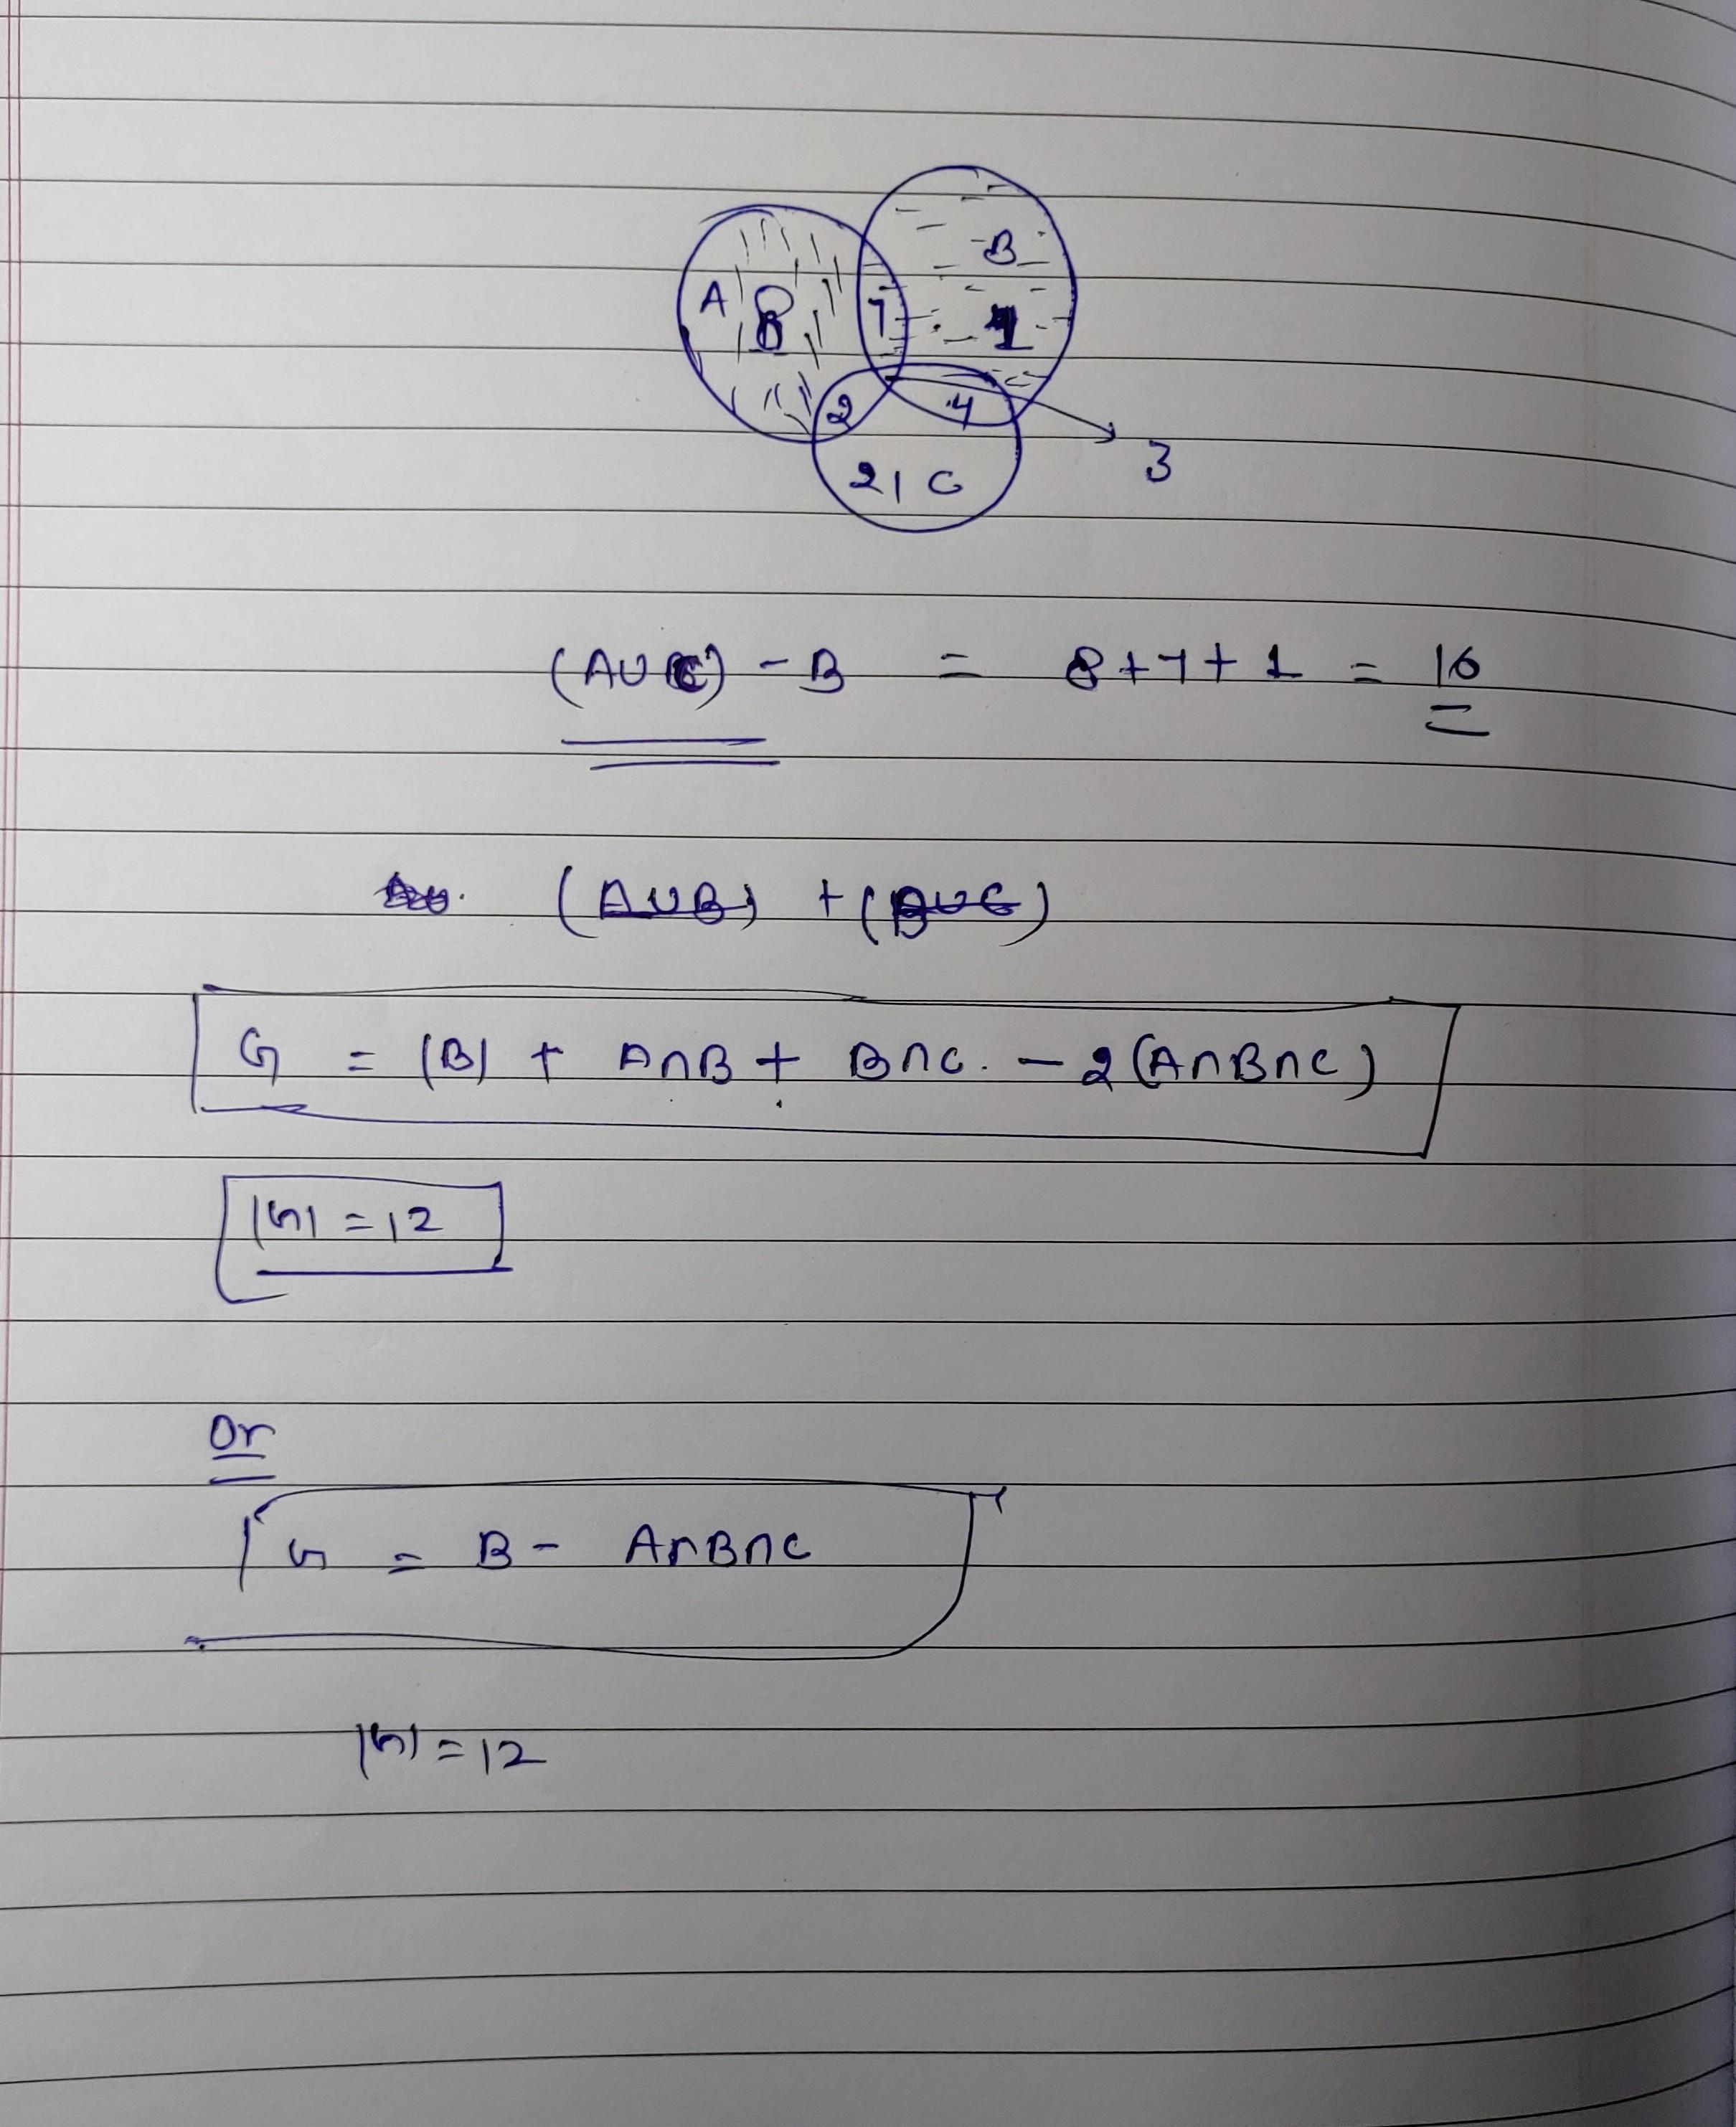 B
A 8 7 1
2 4
3
21 C
(AUC) - B = 8+7+1 = 16
(AUB) + (BUC)
G = |B| + A∩B + B∩C. - 2(A∩B∩C)
|G| = 12
Or
G = B - A∩B∩C
|G| = 12